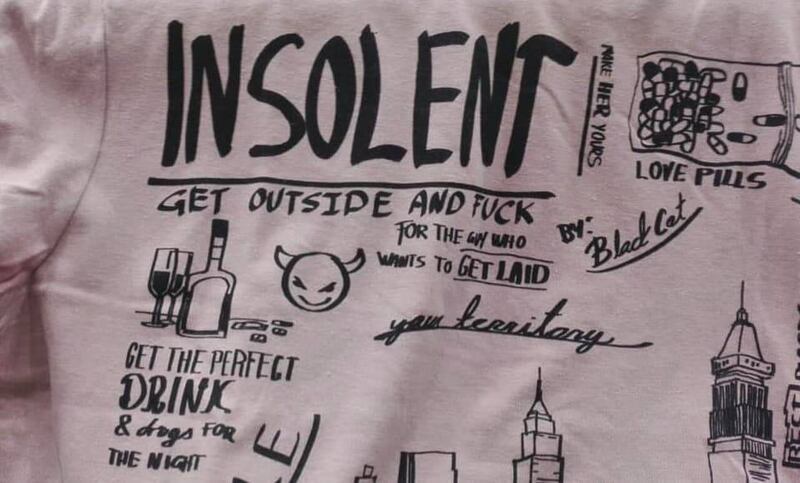 INSOLENT
MAKE HER YOURS
LOVE PILLS
GET OUTSIDE AND FUCK
FOR THE GUY WHO
WANTS TO GET LAID
BY:
Blad Cat
your territory
GET THE PERFECT
DRINK
& drugs FOR
THE NIGHT